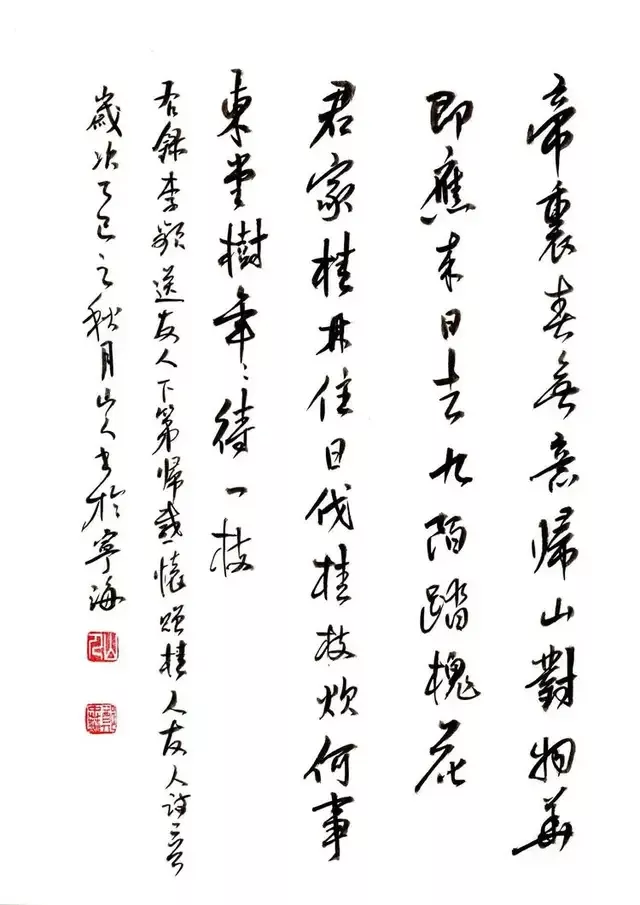 帝裏春無意歸山對物華
即應來日去九陌踏槐花
君家桂林住日伐桂枝炊何事
東堂樹年々待一枝
右錄李頻送友人下第歸感懷贈桂人友人詩二首
歲次乙巳之秋月山人書於寧海
山人